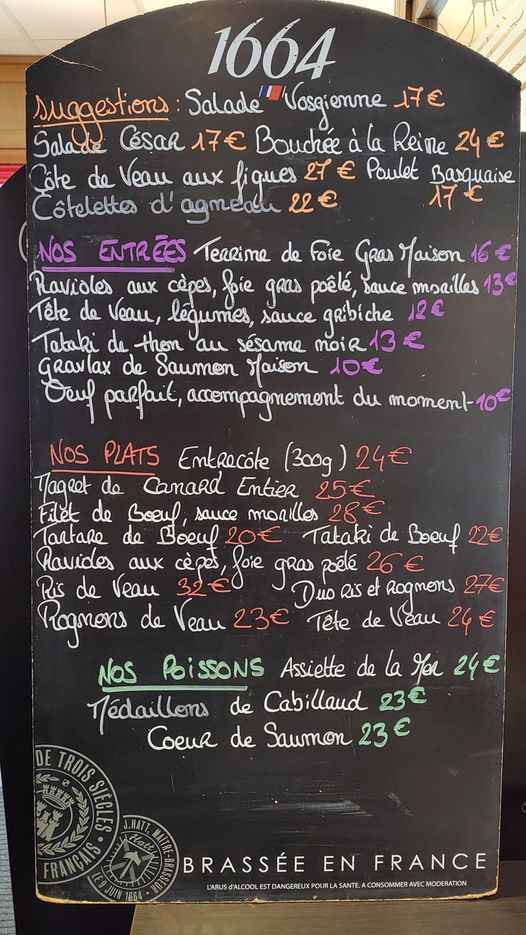 1664
Suggestions : Salade Vosgienne 17€
Salade César 17€ Bouchée à la Reine 24€
Côte de Veau aux figues 27€ Poulet Basquaise
Côtelettes d'agneau 22€ 17€
NOS ENTRÉES Terrine de Foie Gras Maison 16€
Ravioles aux cèpes, foie gras poêlé, sauce morilles 13€
Tête de Veau, légumes, sauce gribiche 12€
Tataki de thon au sésame noir 13€
Gravlax de Saumon Maison 10€
Oeuf parfait, accompagnement du moment - 10€
NOS PLATS Entrecôte (300g) 24€
Magret de Canard Entier 25€
Filet de Boeuf, sauce morilles 28€
Tartare de Boeuf 20€ Tataki de Boeuf 22€
Ravioles aux cèpes, foie gras poêlé 26€
Ris de Veau 32€ Duo Ris et Rognons 27€
Rognons de Veau 23€ Tête de Veau 24€
NOS POISSONS Assiette de la Mer 24€
Médaillons de Cabillaud 23€
Coeur de Saumon 23€
DE TROIS SIÈCLES
FRANÇAIS
J.HATT, MAITRE-BRASSEUR
LE 9 JUIN 1664
Hatt
BRASSÉE EN FRANCE
L'ABUS d'ALCOOL EST DANGEREUX POUR LA SANTE, A CONSOMMER AVEC MODERATION